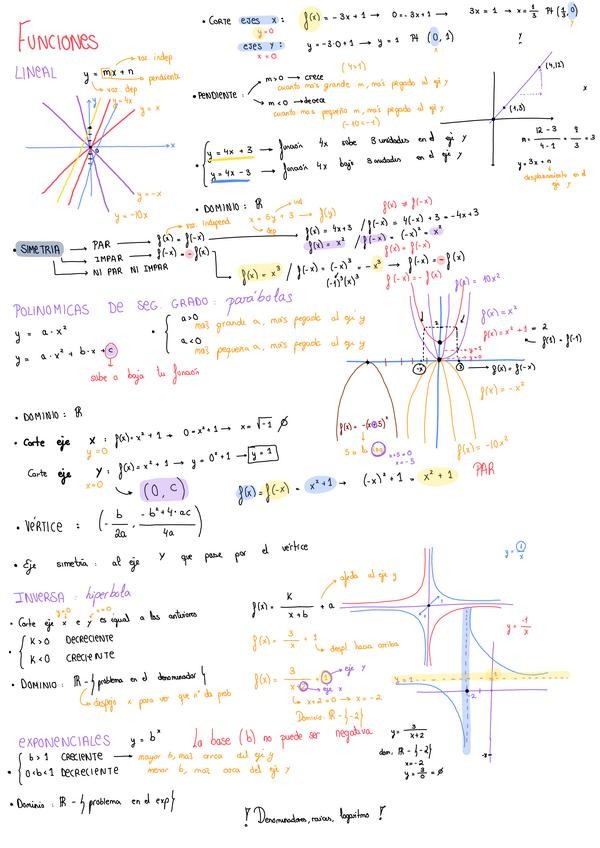 FUNCIONES
• CORTE ejes x: f(x) = -3x+1 → 0 = -3x+1 → 3x = 1 → x = 1/3 Pt (1/3, 0)
y=0
ejes y: y = -3·0+1 → y = 1 Pt (0, 1)
x=0
LINEAL
y = mx + n
var. indep
pendiente
var. dep
y=4x
y=x
y=-x
y=-10x
• PENDIENTE:
m>0 → crece (4>1)
cuanto más grande m, más pegado al eje y
m<0 → decrece
cuanto más pequeña m, más pegado al eje y
(-10<-1)
(4,12)
(1,3)
m = 12-3 / 4-1 = 9/3 = 3
y = 3x+n
desplazamiento en el eje y
y = 4x + 3 → función 4x sube 3 unidades en el eje y
y = 4x - 3 → función 4x baja 3 unidades en el eje y
• DOMINIO: ℝ
x = 5y + 3 → f(y)
ind
dep
• SIMETRIA → PAR → f(x) = f(-x)
var. independ
→ IMPAR → f(-x) = -f(x)
→ NI PAR NI IMPAR
f(x) ≠ f(-x)
f(x) = 4x+3 / f(-x) = 4(-x)+3 = -4x+3
f(x) = x² / f(-x) = (-x)² = x²
f(x) = f(-x)
f(x) = x³ / f(-x) = (-x)³ = -x³ → f(-x) = -f(x)
(-1)³(x)³
f(-x) = -f(x)
POLINOMICAS DE SEG. GRADO: parábolas
y = a·x²
y = a·x² + b·x + c
sube o baja la función
• a>0
más grande a, más pegado al eje y
a<0
más pequeña a, más pegado al eje y
f(x) = 10x²
f(x) = x²
f(x) = x²+1 = 2
f(1) = f(-1)
y=1
y=0
-x
→ f(x) = f(-x)
f(x) = -x²
f(x) = -(x+5)²
x+5=0
x=-5
f(x) = -10x²
PAR
• DOMINIO: ℝ
• Corte eje x: f(x) = x²+1 → 0 = x²+1 → x = √-1 ∅
y=0
Corte eje y: f(x) = x²+1 → y = 0²+1 → y = 1
x=0
(0, C)
f(x) = f(-x) = x²+1 → (-x)²+1 = x²+1
• VÉRTICE: (-b/2a, -b²+4·ac/4a)
• Eje simetría: al eje y que pase por el vértice
INVERSA: hipérbola
y=0 x=0
• Corte eje x e y es igual a los anteriores
• K>0 DECRECIENTE
K<0 CRECIENTE
• DOMINIO: ℝ - {problema en el denominador}
despejo x para ver que nº da prob
f(x) = K/x+b + a
afecta al eje y
f(x) = 3/x + 1
despl. hacia arriba
f(x) = 3/x+2 + 1
eje y
eje x
x+2=0 → x=-2
Dominio: ℝ - {-2}
y = 1/x
y = -1/x
y=1
-2
y = 3/x+2
dom: ℝ - {-2}
x=-2
y = 3/0 = ∅
-x
EXPONENCIALES y = bˣ La base (b) no puede ser negativa
• b>1 CRECIENTE → mayor b, más cerca del eje y
0<b<1 DECRECIENTE menor b, más cerca del eje y
• Dominio: ℝ - {problema en el exp}
! Denominadores, raíces, logaritmo !